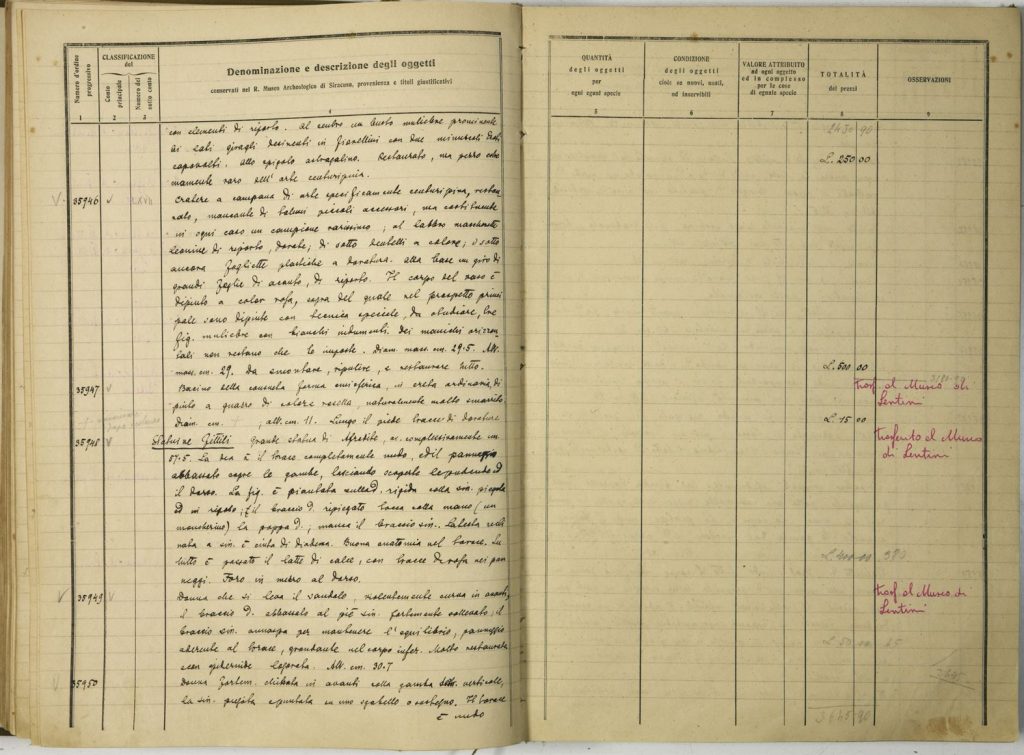 Numero d'ordine progressivo
CLASSIFICAZIONE del
Conto principale
Numero del sotto conto
Denominazione e descrizione degli oggetti
conservati nel R. Museo Archeologico di Siracusa, provenienza e titoli giustificativi
1 2 3 4
con elementi di riporto. Al centro un busto muliebre prominente
ai lati giragli desinenti in
capovolti. Allo spigolo astragalino. Restaurato, ma pezzo estre
mamente raro dell'arte centuripina.
35946 Cratere a campana di arte specificamente centuripina, restau
rato, mancante di taluni piccoli accessori, ma costituente
in ogni caso un campione rarissimo; al labbro maschette
leonine di riporto, dorate; di sotto dentelli a colore; sotto
ancora fogliette plastiche a doratura. Alla base un giro di
grandi foglie di acanto, di riporto. Il corpo del vaso è
dipinto a color rosa, sopra del quale nel prospetto princi
pale sono dipinte con tecnica speciale, da studiare, tre
fig. muliebre con bianchi indumenti. Dei manichi orizzon
tali non restano che le imposte. Diam. mass. cm. 29.5. Alt.
mass. cm. 29. Da smontare, ripulire, e restaurare tutto.
35947 Bacino della consueta forma emisferica, in creta ordinaria, di
pinto a guazzo di colore rosella, naturalmente molto smarrito
Diam. cm. ; alt. cm. 11. Lungo il piede tracce di dorature
35948 Statuine fittili Grande statua di Afrodite, a. complessivamente cm.
57.5. La dea è il torso completamente nudo, ed il panneggio
abbassato copre le gambe, lasciando scoperto le pudende ed
il dorso. La fig. è piantata sulla d. rigida colla sin. piegata
ed in riposo; il braccio d. ripiegato tocca colla mano (un
moncherino) la poppa d.; manca il braccio sin. La testa recli
nata a sin. è cinta di diadema. Buona anatomia nel torace. Su
tutto è passato il latte di calce, con tracce di rosa nei pan
neggi. Foro in mezzo al dorso.
35949 Donna che si leva il sandalo, violentemente curva in avanti,
il braccio d. abbassato al piè sin. fortemente sollevato; il
braccio sin. annaspa per mantenere l'equilibrio, panneggio
aderente al torace, grondante nel corpo infer. Molto restaurata
con epidermide logorata. Alt. cm. 30.5
35950 Donna fortem. chinata in avanti colla gamba verticale,
la sin. piegata e puntata su uno sgabello o sostegno. Il torace
è nudo
QUANTITÀ degli oggetti per ogni eguale specie
CONDIZIONE degli oggetti cioè: se nuovi, usati, od inservibili
VALORE ATTRIBUITO ad ogni oggetto ed in complesso per le cose di eguale specie
TOTALITÀ dei prezzi
OSSERVAZIONI
5 6 7 8 9
2430 90
L. 250 00
L. 500 00
trasf. al Museo di
Lentini
L. 15 00
trasferito al Museo
di Lentini
L. 400 00 380
trasf. al Museo di
Lentini
L. 50 00
3645 90